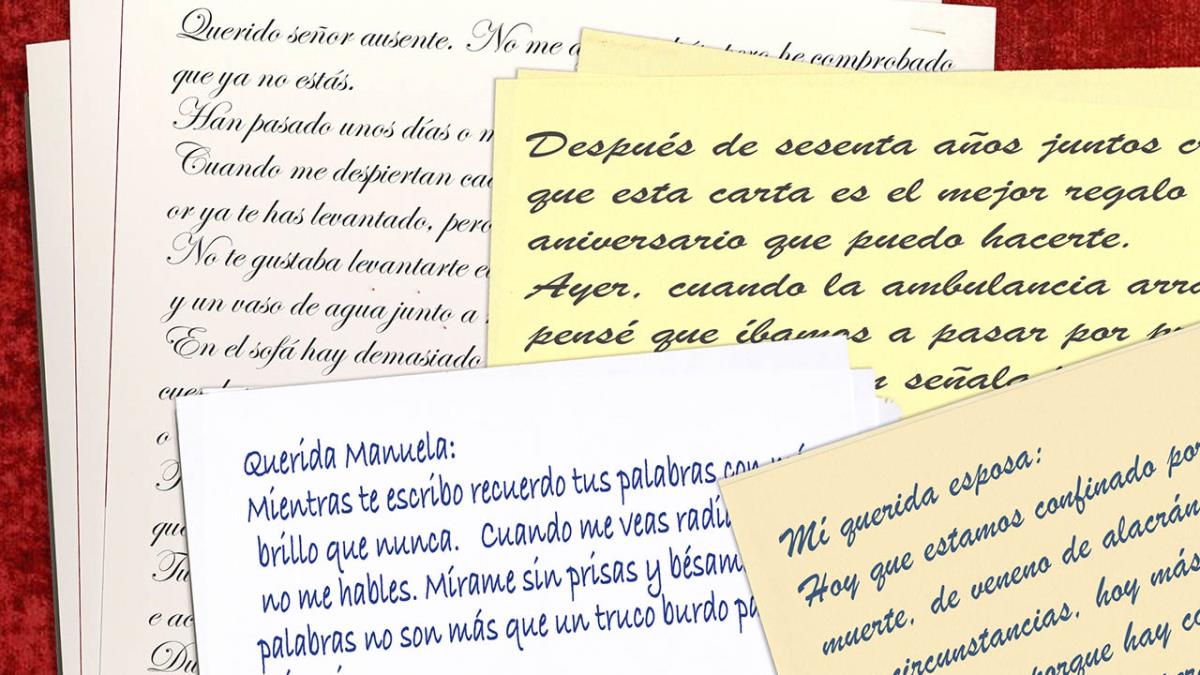 Querido señor ausente. No me he comprobado
que ya no estás.
Han pasado unos días o
Cuando me despiertan
or ya te has levantado, pero
No te gustaba levantarte
y un vaso de agua junto a
En el sofá hay demasiado
Después de sesenta años juntos
que esta carta es el mejor regalo
aniversario que puedo hacerte.
Ayer, cuando la ambulancia
pensé que íbamos a pasar por
Querida Manuela:
Mientras te escribo recuerdo tus palabras con
brillo que nunca. Cuando me veas
no me hables. Mírame sin prisas y
palabras no son más que un truco burdo
Mi querida esposa:
Hoy que estamos confinado por
muerte, de veneno de
circunstancias, hoy más
porque hay